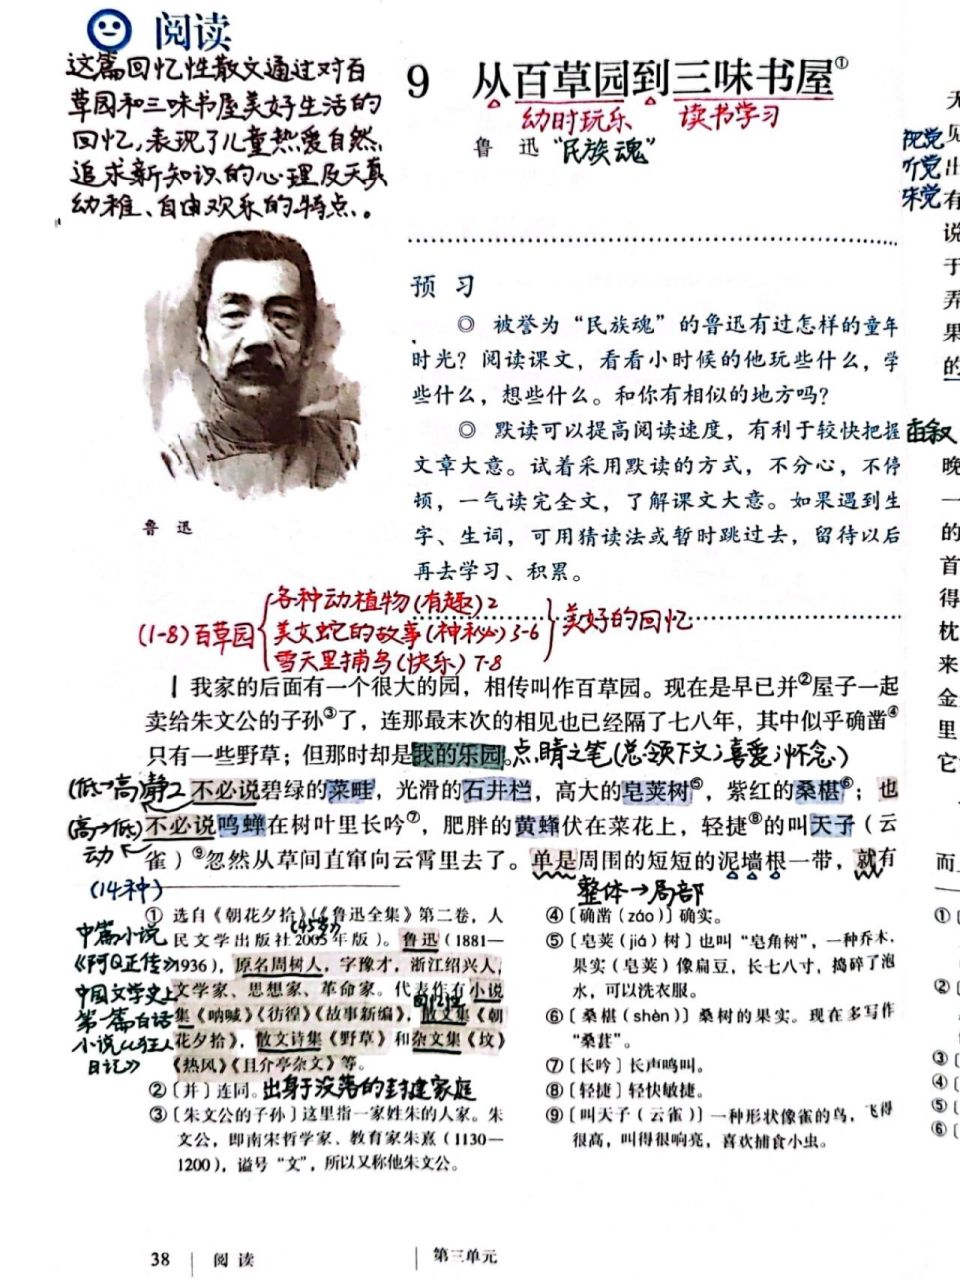 阅读
这篇回忆性散文通过对百
草园和三味书屋美好生活的
回忆,表现了儿童热爱自然,
追求新知识的心理及天真
幼稚、自由欢乐的特点.。
9 从百草园到三味书屋①
幼时玩乐 读书学习
鲁 迅 “民族魂”
视觉
听觉
味觉
预 习
◎ 被誉为“民族魂”的鲁迅有过怎样的童年
时光?阅读课文,看看小时候的他玩些什么,学
些什么,想些什么。和你有相似的地方吗?
◎ 默读可以提高阅读速度,有利于较快把握
文章大意。试着采用默读的方式,不分心,不停
顿,一气读完全文,了解课文大意。如果遇到生
字、生词,可用猜读法或暂时跳过去,留待以后
再去学习、积累。
鲁 迅
(1-8)百草园
各种动植物(有趣)2
美女蛇的故事(神秘)3-6
雪天里捕鸟(快乐)7-8
美好的回忆
1 我家的后面有一个很大的园,相传叫作百草园。现在是早已并②屋子一起
卖给朱文公的子孙③了,连那最末次的相见也已经隔了七八年,其中似乎确凿④
只有一些野草;但那时却是我的乐园。点睛之笔(总领下文;喜爱;怀念)
(低→高)静2 不必说碧绿的菜畦,光滑的石井栏,高大的皂荚树⑤,紫红的桑椹⑥;也
(高→低) 不必说鸣蝉在树叶里长吟⑦,肥胖的黄蜂伏在菜花上,轻捷⑧的叫天子(云
动 雀)⑨忽然从草间直窜向云霄里去了。单是周围的短短的泥墙根一带,就有
(14种)
整体→局部
① 选自《朝花夕拾》(《鲁迅全集》第二卷,人
民文学出版社2005年版)。鲁迅(1881—
1936),原名周树人,字豫才,浙江绍兴人,
文学家、思想家、革命家。代表作有小说
集《呐喊》《彷徨》《故事新编》,散文集《朝
花夕拾》,散文诗集《野草》和杂文集《坟》
《热风》《且介亭杂文》等。
回忆性
中篇小说
《阿Q正传》
中国文学史上
第一篇白话
小说《狂人
日记》
② 〔并〕连同。出身于没落的封建家庭
③ 〔朱文公的子孙〕这里指一家姓朱的人家。朱
文公,即南宋哲学家、教育家朱熹(1130—
1200),谥号“文”,所以又称他朱文公。
④ 〔确凿(záo)〕确实。
⑤ 〔皂荚(jiá)树〕也叫“皂角树”,一种乔木,
果实(皂荚)像扁豆,长七八寸,捣碎了泡
水,可以洗衣服。
⑥ 〔桑椹(shèn)〕桑树的果实。现在多写作
“桑葚”。
⑦ 〔长吟〕长声鸣叫。
⑧ 〔轻捷〕轻快敏捷。
⑨ 〔叫天子(云雀)〕一种形状像雀的鸟,飞得
很高,叫得很响亮,喜欢捕食小虫。
38 阅 读 第三单元
见
出
有
说
于
弄
果
的
晚
一
的
首
得
枕
来
金
里
它
而
①
②
③
④
⑤
⑥